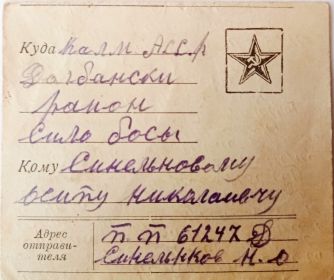 Куда Калм АССР
Долбански
район
сило босы
Кому Синельновому
осипу николаивичу
Адрес
отправи-
теля
П П 61247 Д
Синельнков Н. О